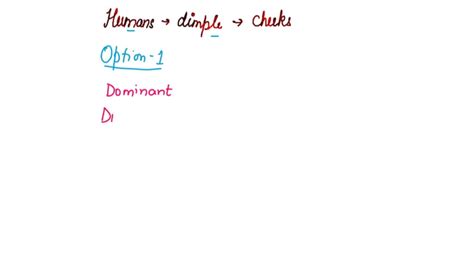 Humans → dimple → cheeks
Option-1
Dominant
D